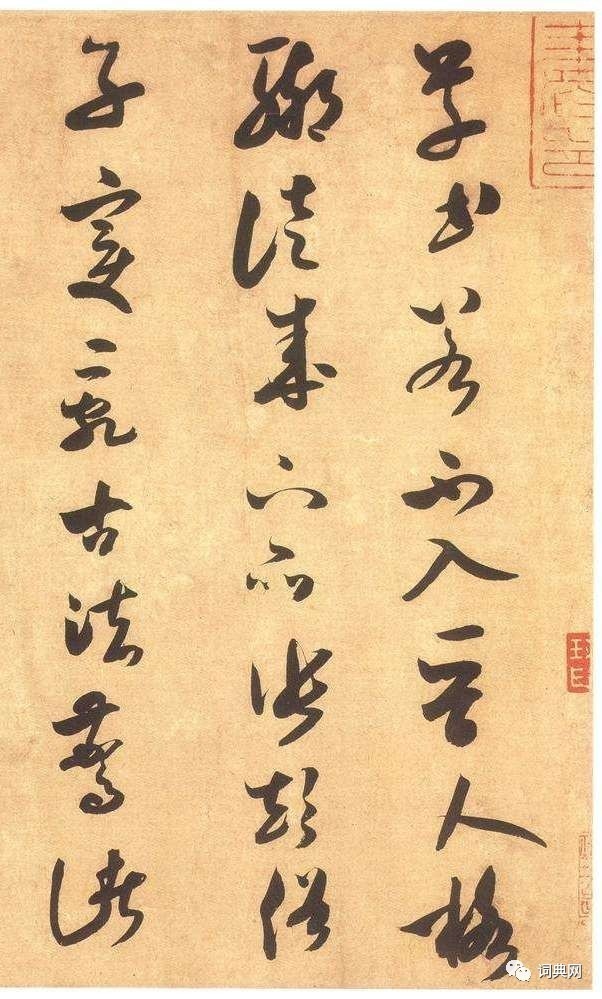 草書若不入晉人格
輒徒成下品張顛俗
子變亂古法驚諸
词典网